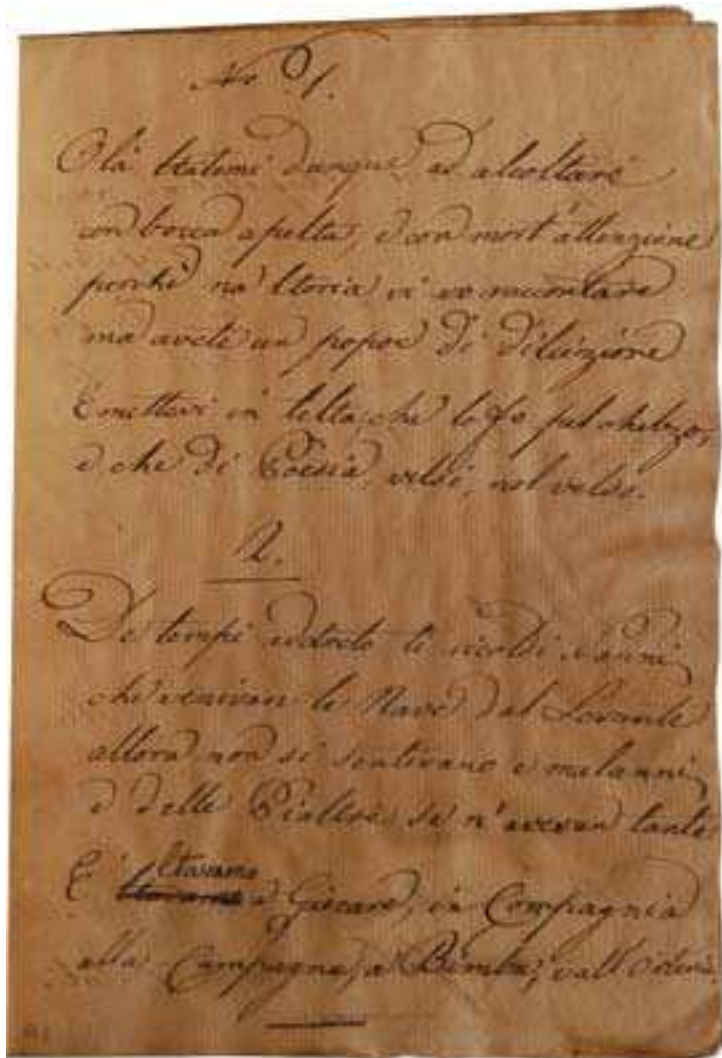 No. 1.
Olà ttatemi dunque ad ascoltare
con bocca apelta, e con mort'attenzione
perchè na' ttoria vi vo raccontare
ma avete un popoe di dilcizione
E mettevi in tetta, che lo fo pel
e che di Poesia, velsi,
2.
De tempi indreto ti ricoldi Nanni
che venivan le Nave dal Levante
allora non si sentivano e malanni
e delle Piattre se n'avevan tante
E' ttavamo a Giocare, in Compagnia
alla Campagna, a Bimbi,